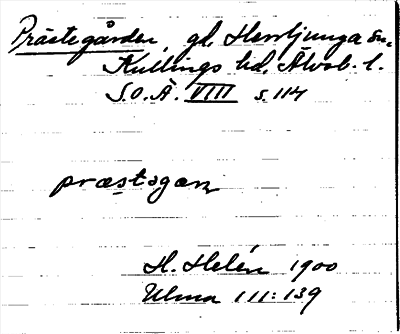 Prästegården, gl. Herrljunga sn.,
Kullings hd, Älvsb. l.
S.O.Ä. VIII s. 114
præstəgan
H. Helén 1900
Ulma 111:139